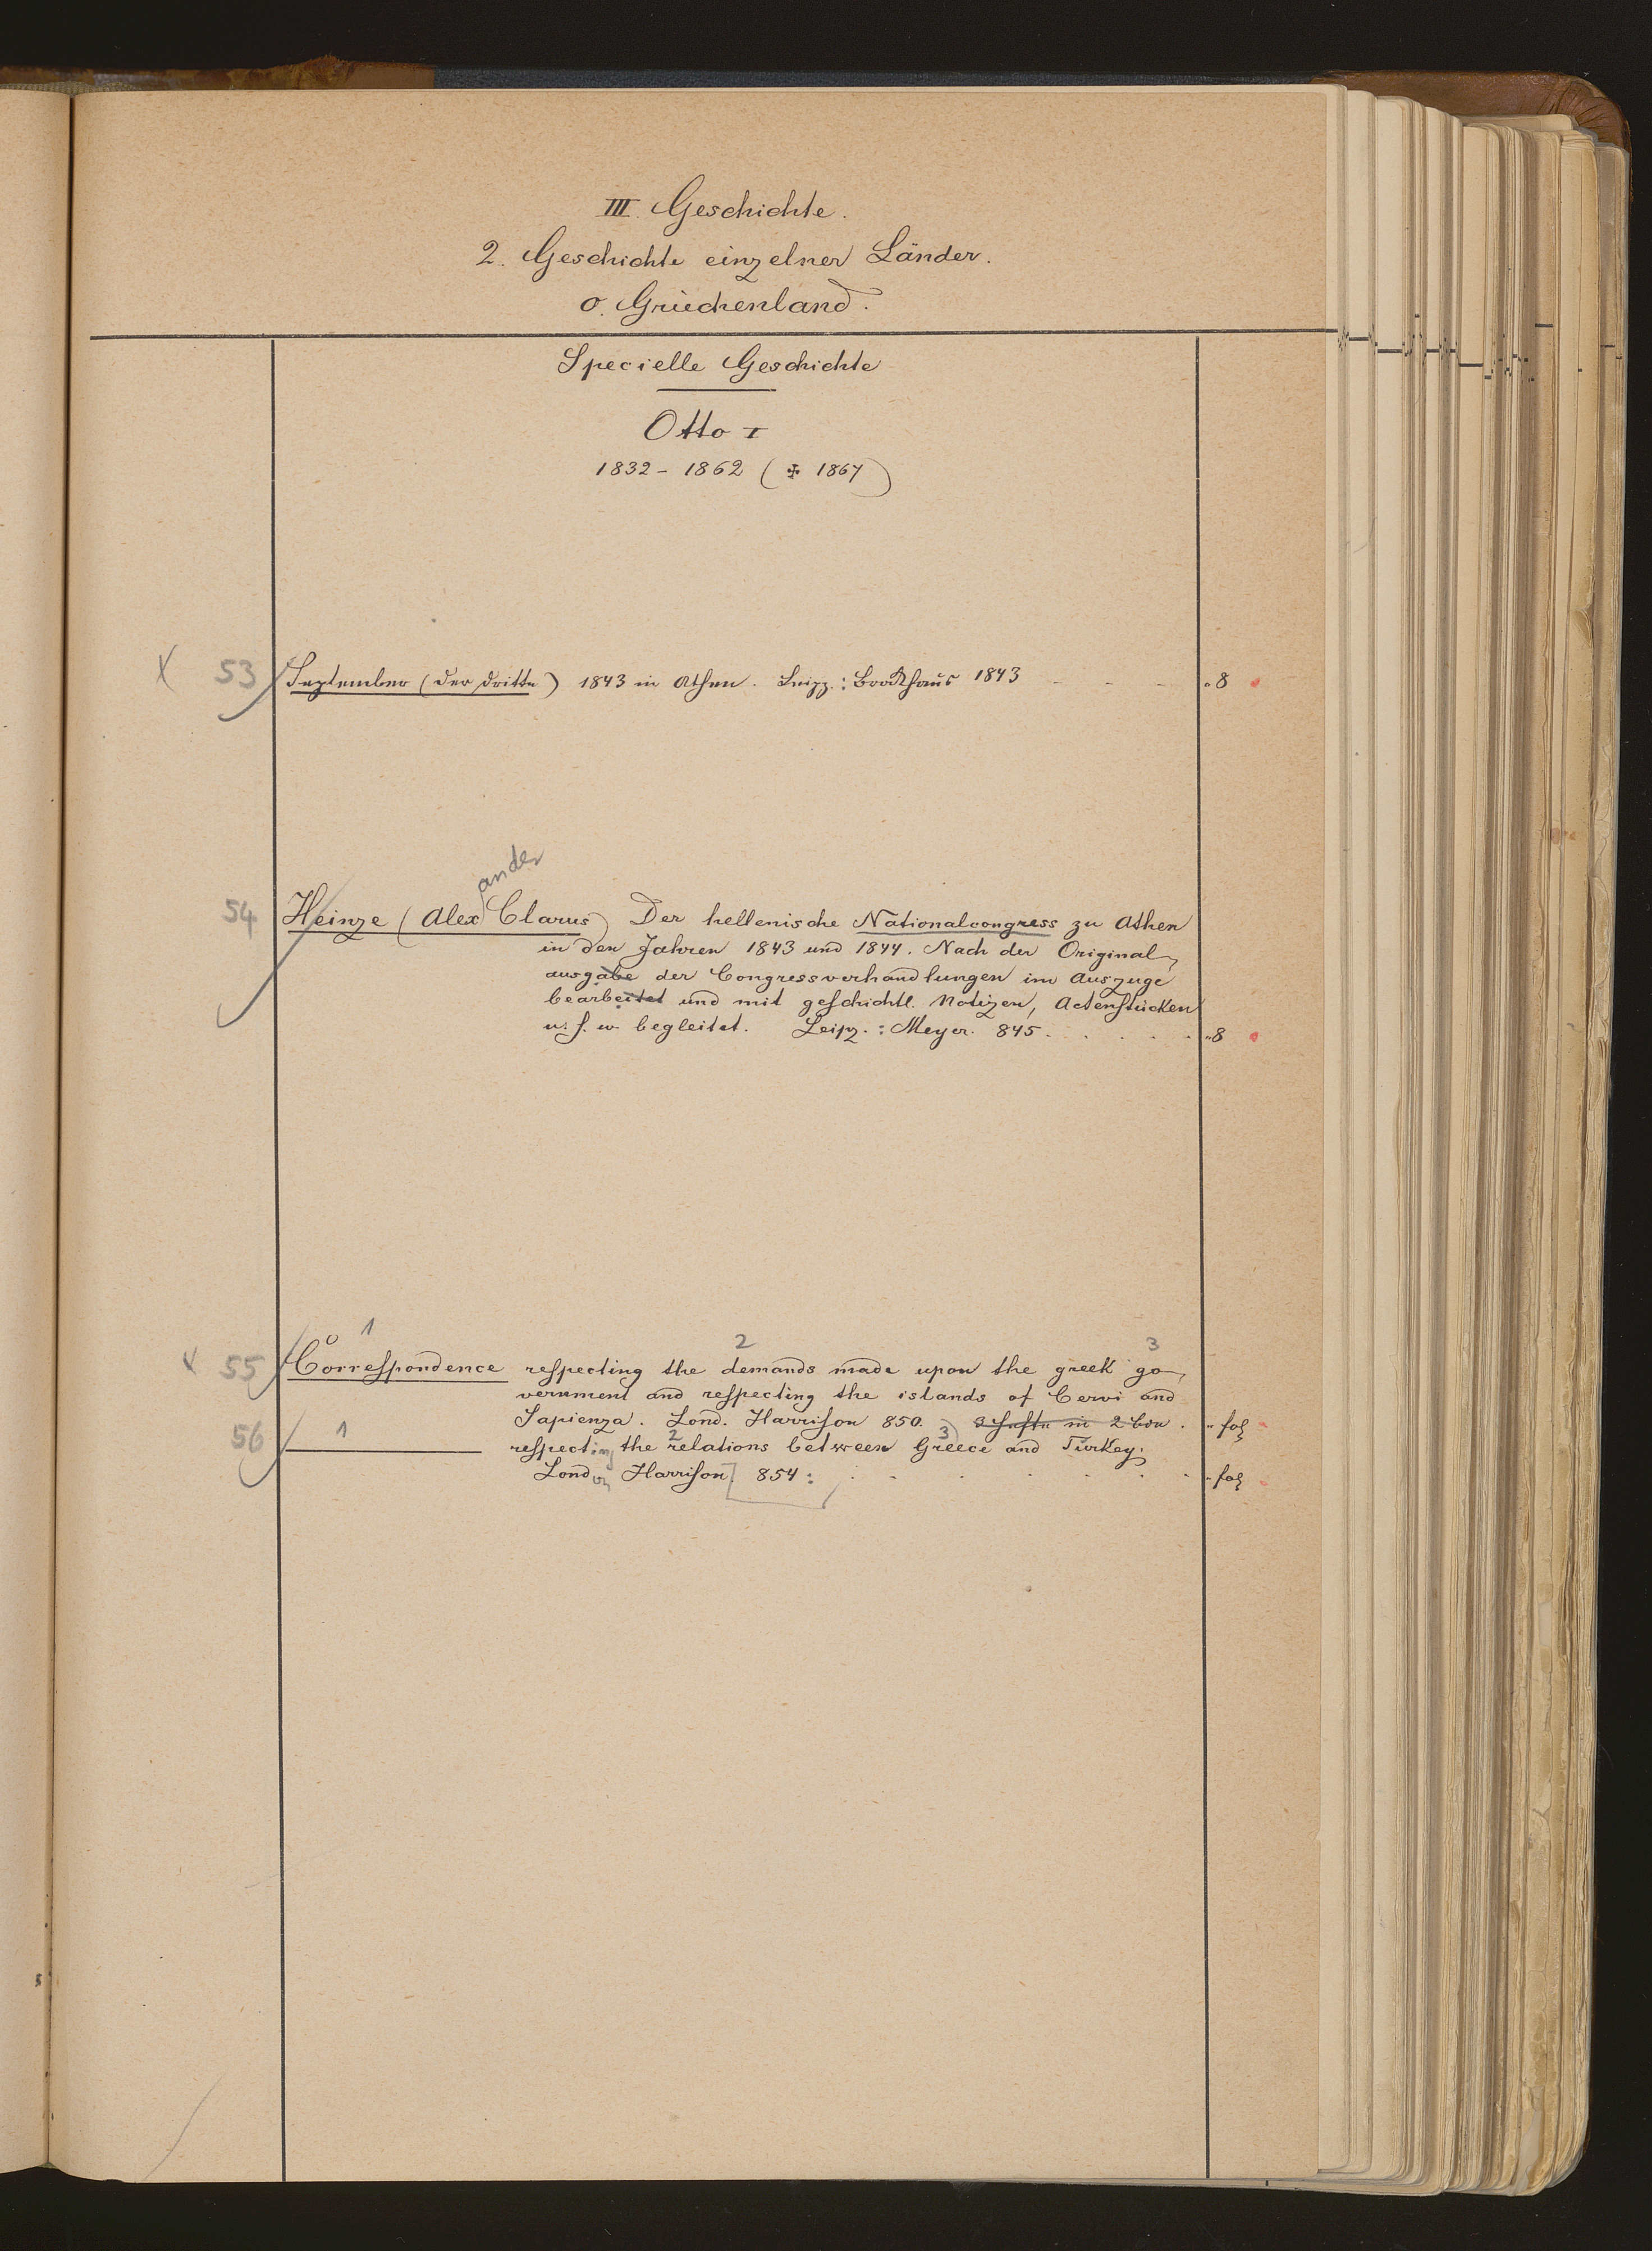 III. Geschichte.
2. Geschichte einzelner Länder.
o. Griechenland.
Specielle Geschichte
Otto I
1832 - 1862 (✠ 1867)
X 53 September (der dritte) 1843 in Athen. Leipz.: Brockhaus 1843 - - - - "8
ander
54 Heinze (Alex Clarus) Der hellenische Nationalcongress zu Athen
in den Jahren 1843 und 1844. Nach der Original-
ausgabe der Congressverhandlungen im Auszuge
bearbeitet und mit geschichtl. Notizen, Actenstücken
u. s. w. begleitet. Leipz.: Meyer. 845. . . . . . "8
1 2 3
x 55 Correspondence respecting the demands made upon the greek go-
vernment and respecting the islands of Cervi and
Sapienza. Lond. Harrison 850. 3 Hefte in 2 Bdn. " fol
56 1 respecting the 2 relations between 3 Greece and Turkey.
London Harrison 854: . . . . . . " fol